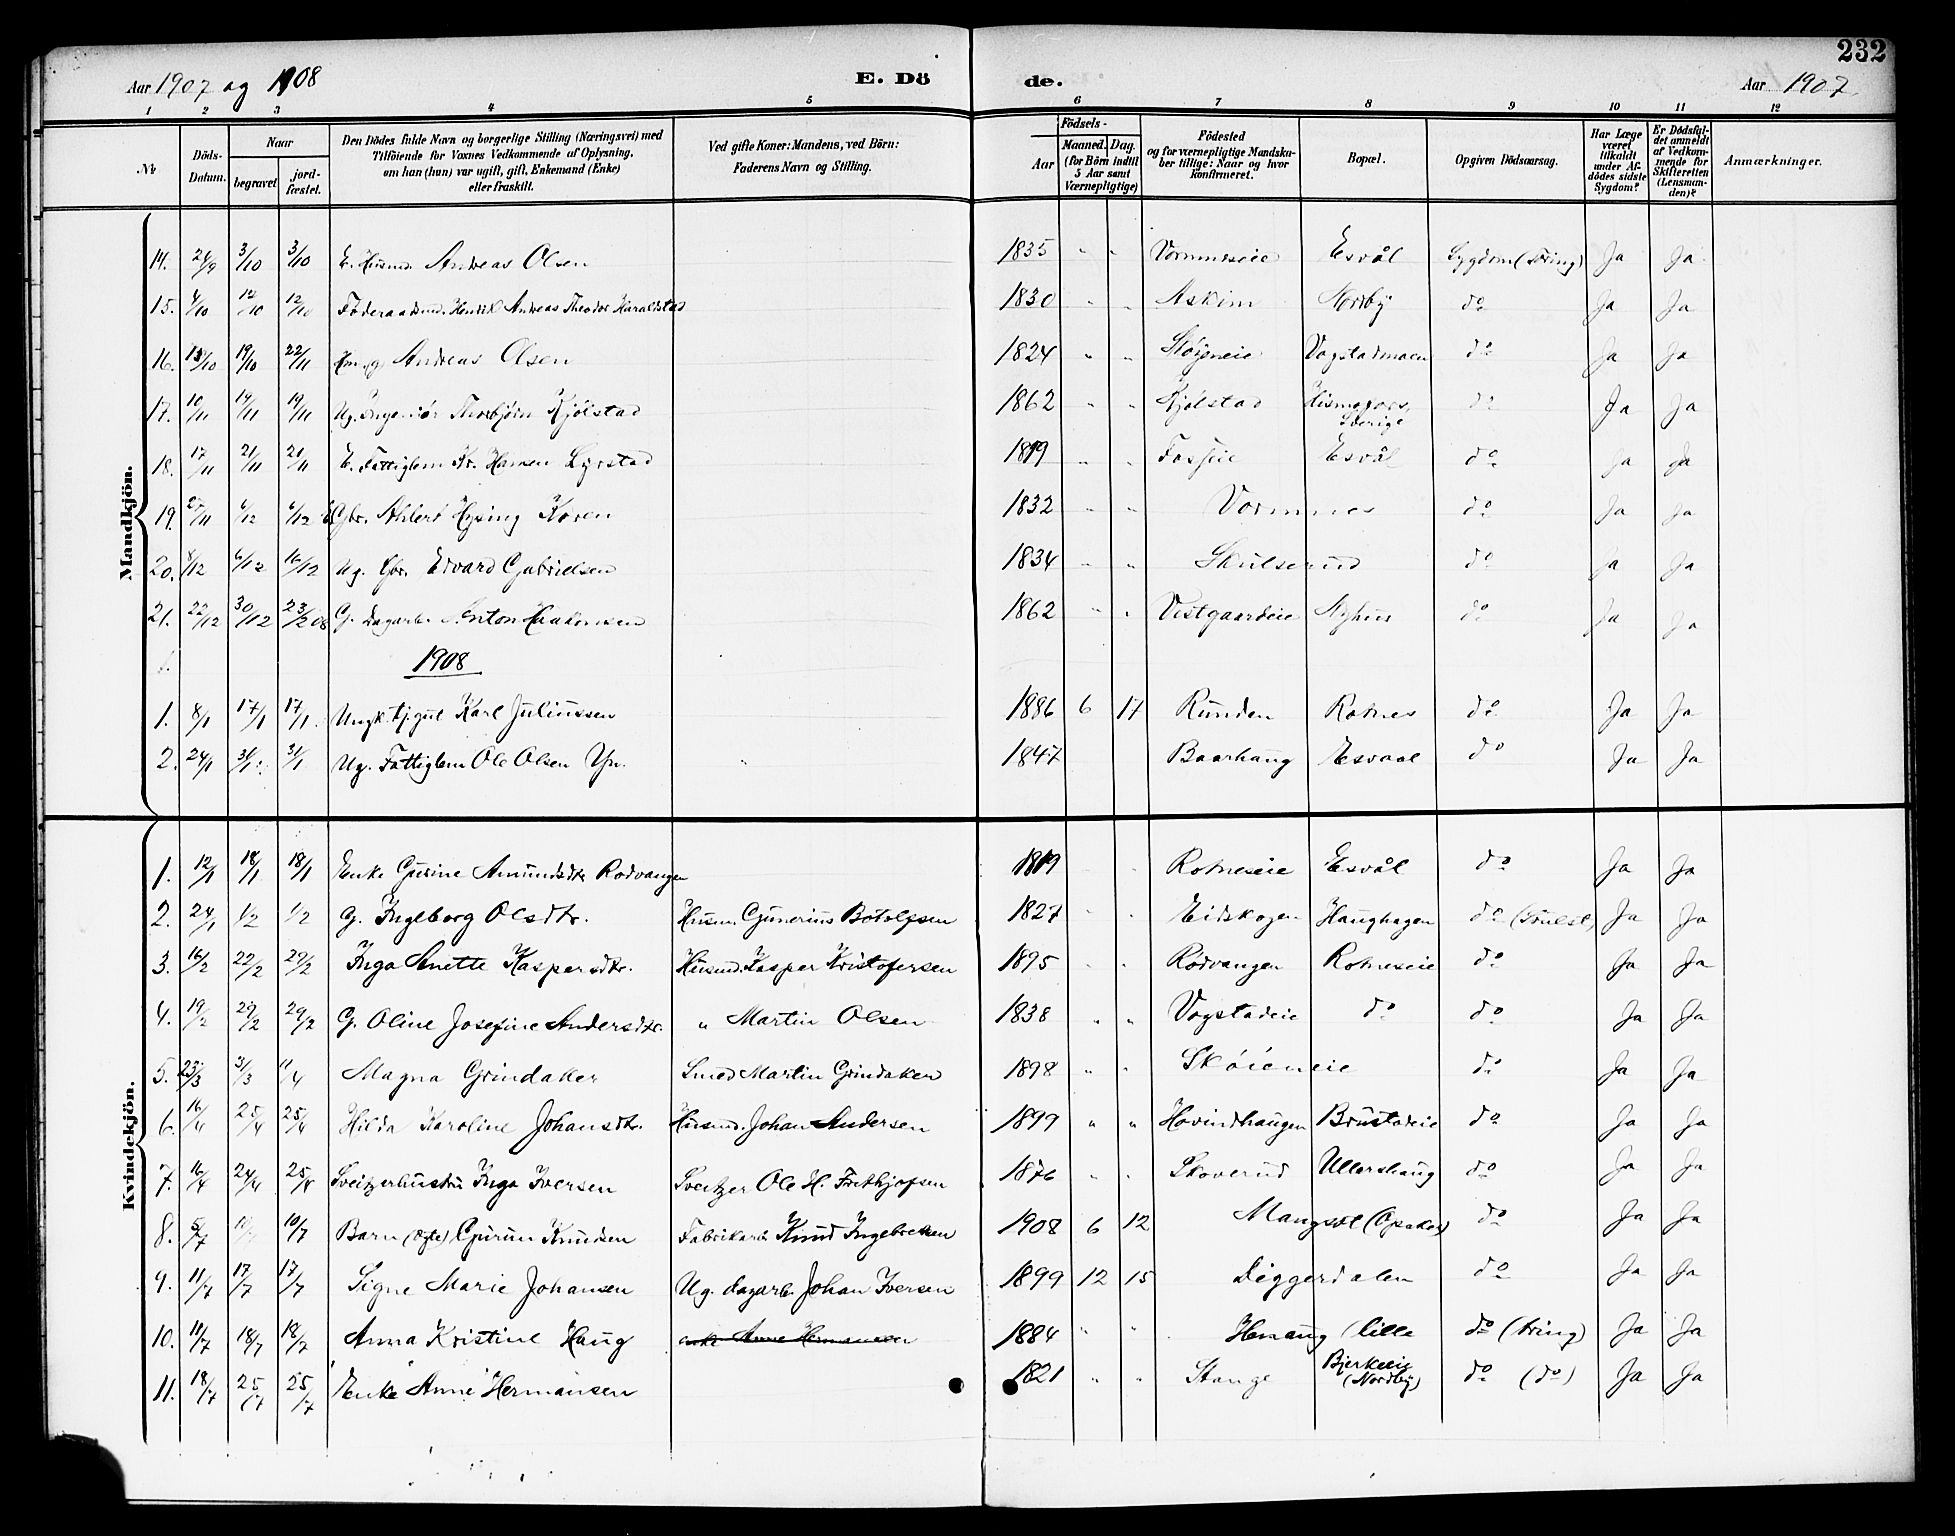 232
Aar 1907 og 1908 E. Dö de. Aar 1907
1 2 3 4 5 6 7 8 9 10 11 12
No
Döds-Datum.
Naar
begravet
jordfæstet.
Den Dödes fulde Navn og borgerlige Stilling (Næringsvei) med
Tilföiende for Voxnes Vedkommende af Oplysning,
om han (hun) var ugift, gift, Enkemand (Enke)
eller fraskilt.
Ved gifte Koner: Mandens, ved Börn:
Faderens Navn og Stilling.
Födsels-
Aar
Maaned. Dag.
(for Börn indtil
5 Aar samt
Værnepligtige)
Födested
og for værnepligtige Mandskaber tillige: Naar og hvor
konfirmeret.
Bopæl.
Opgiven Dödsaarsag.
Har Læge
været
tilkaldt
under Afdödes sidste
Sygdom?
Er Dödsfaldet anmeldt
af Vedkommende for
Skifteretten
(Lensmanden)?
Anmærkninger.
Mandkjön.
14. 3/10 3/10 E. Husmd. Andreas Olsen 1835 " " Vormneseie Esvål Sygdom Ja Ja
15. 4/10 12/10 12/10 Föderaadsmd. Henrik Andreas Theodor Haraldstad 1830 " " Askim Nordby do Ja Ja
16. 19/10 22/11 Andreas Olsen 1824 " " Vogstadmoen do Ja Ja
17. 10/11 19/11 Ug. Ingeniör Thorbjörn Kjölstad 1862 " " Kjölstad Hismofors, Sverige do Ja Ja
18. 17/11 21/11 21/11 E. Fattiglem Kr. Hansen Lyrstad 1819 " " Fosseie Esvål do Ja Ja
19. 6/12 6/12 Gbr. Ahlert Hysing Koren 1832 " " Vormnes do Ja Ja
20. 6/12 16/12 Ug. Gbr. Edvard Gabrielsen 1834 " " Skulserud do Ja Ja
21. 22/12 30/12 23/2 08 G. Dagarb. Anton Haakensen 1862 " " Vestgaardeie Nyhus do Ja Ja
1908
1. 8/1 17/1 17/1 Ungk. tj.gut Karl Juliussen 1886 6 17 Runden Rotnes do Ja Ja
2. 24/1 31/1 31/1 Ug. Fattiglem Ole Olsen Yn. " 1847 Baarhaug Esvaal do Ja Ja
Kvindekjön.
1. 12/1 18/1 18/1 Enke Gurine Amundsdtr Rodvangen 1819 " " Rotneseie Esvål do Ja Ja
2. 24/1 1/2 1/2 G. Ingeborg Olsdtr. Husm. Gunerius Botolfsen 1827 " " Eidskogen Haughagen do Ja Ja
3. 16/2 22/2 29/2 Inga Anette Kaspersdtr. Husmd. Kasper Kristofersen 1895 " " Rödvangen Rotneseie do Ja Ja
4. 19/2 29/2 29/2 G. Oline Josefine Andersdtr. " Martin Olsen 1838 " " Vogstadeie do do Ja Ja
5. 23/3 31/3 11/4 Magna Grindaker Smed Martin Grindaker 1898 " " Sköieneie do Ja Ja
6. 16/4 25/4 25/4 Hilda Karoline Johansdtr. Husmd. Johan Andersen 1899 " " Hovindhaugen Brustadeie do Ja Ja
7. 16/4 24/4 25/4 Sveitzerhustru Inga Iversen Sveitzer Ole H. Frithjofsen 1876 " " Skoverud Ullershaug do Ja Ja
8. 5/7 10/7 10/7 Barn (Ægte) Gurun Knudsen Fabrikarb. Knud Ingebretsen 1908 6 12 do Ja Ja
9. 11/7 17/7 17/7 Signe Marie Johansen Ug. dagarb. Johan Iversen 1899 12 15 Diggerdalen do Ja Ja
10. 11/7 18/7 18/7 Anna Kristine Haug enke Anne Hermansen 1884 " " Henaug lille do Ja Ja
11. 18/7 25/7 25/7 Enke Anne Hermansen 1821 " " Stange Bjerkeeie (Nordby) do (do) Ja Ja